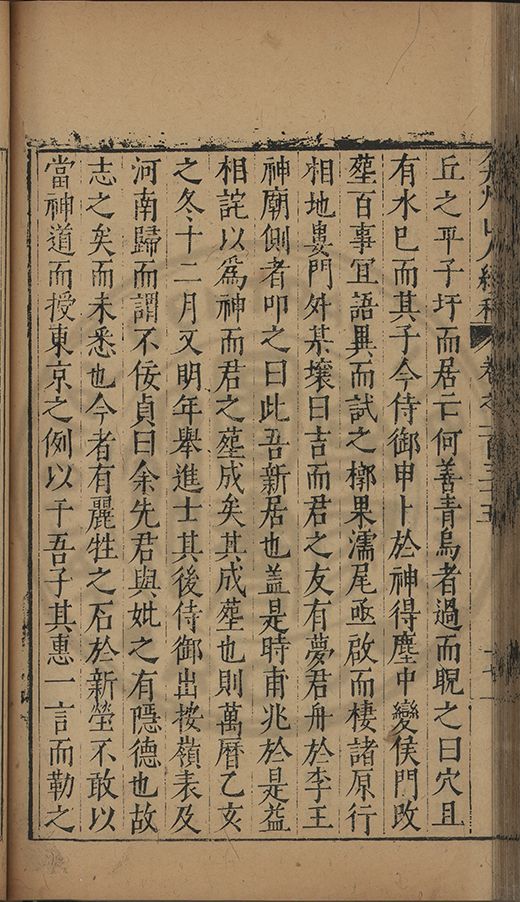 弇州山人續稿 卷之一百三十五
丘之平子圩而居亡何善青烏者過而睨之曰穴且
有水巳而其子今侍御申卜於神得塵中變侯門改
塟百事宜語異而試之槨果濡尾亟啟而棲諸原行
相地婁門外某壤曰吉而君之友有夢君舟於李王
神廟側者叩之曰此吾新居也盖是時甫兆於是益
相詫以爲神而君之塟成矣其成塟也則萬曆乙亥
之冬十二月又明年舉進士其後侍御出按嶺表及
河南歸而謂不佞貞曰余先君與妣之有隱德也故
志之矣而未悉也今者有麗牲之石於新塋不敢以
當神道而授東京之例以干吾子其惠一言而勒之